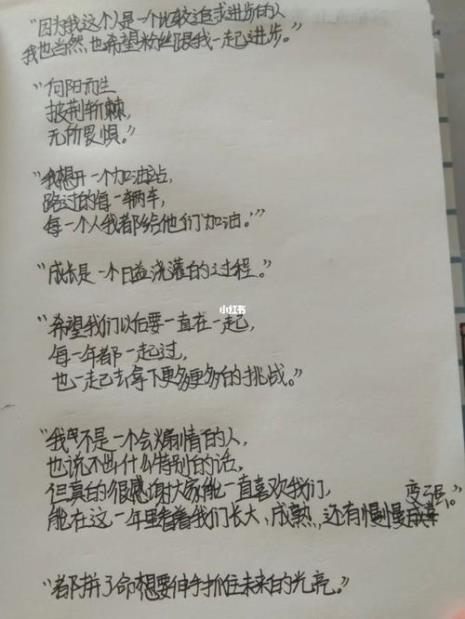 “因为我这个人是一个比较追求进步的人
我也当然,也希望粉丝跟我一起进步。”
“向阳而生
披荆斩棘,
无所畏惧。”
“我想开一个加油站,
路过的每一辆车,
每一个人我都给他们加油。”
“成长是一个日益浇灌的过程。”
小红书
“希望我们以后要一直在一起,
每一年都一起过,
也一起去拿下更多更多的挑战。”
“我不是一个会煽情的人,
也说不出什么特别的话,
但真的很感谢大家能一直喜欢我们,
能在这一年里看着我们长大,成熟,还有慢慢变强。”
“都拼了命想要伸手抓住未来的光亮。”